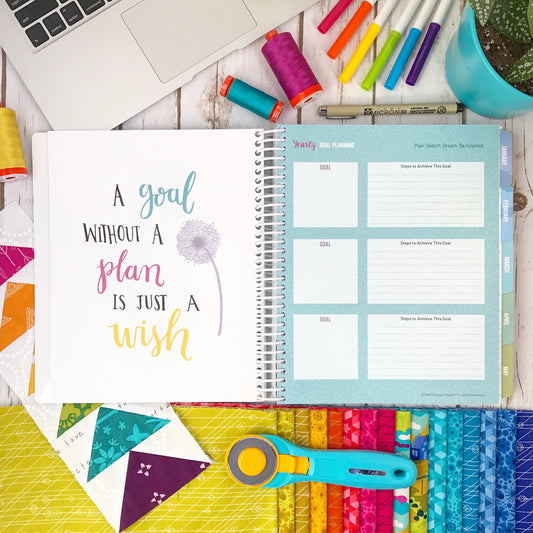 A goal
WITHOUT A
plan
IS JUST A
wish
Yearly GOAL PLANNING
Plan. Sketch. Dream. Be Inspired.
GOAL
Steps to Achieve This Goal
GOAL
Steps to Achieve This Goal
GOAL
Steps to Achieve This Goal
JANUARY
FEBRUARY
MARCH
APRIL
MAY
MICRON
love